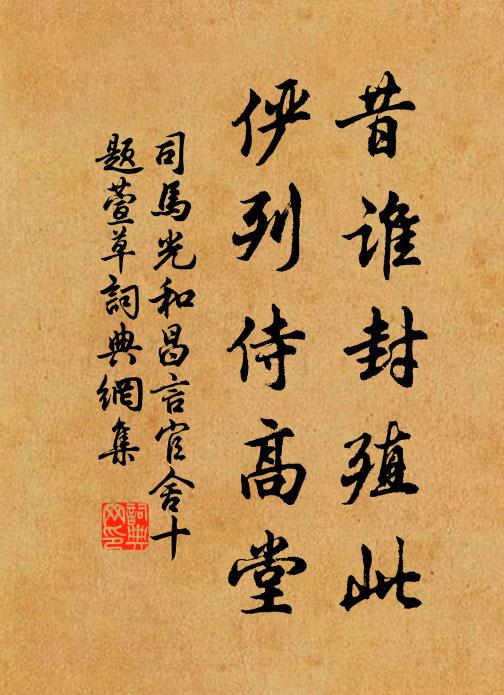 昔谁封殖此
俨列侍高堂
司馬光和昌言官舍十
题萱草詞典網集
詞典网印